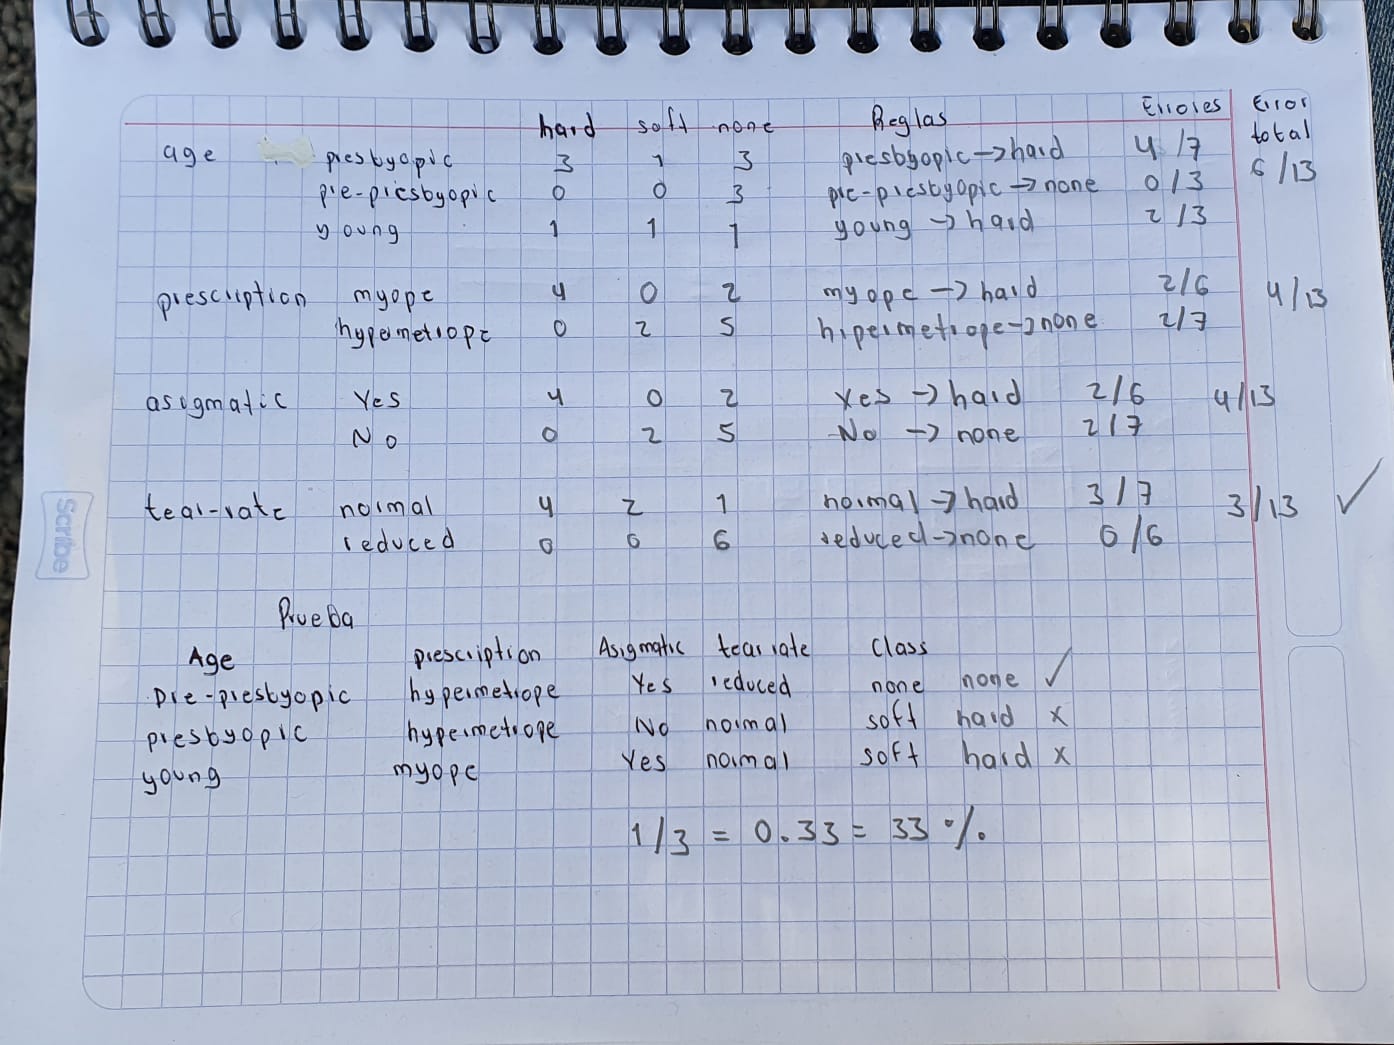 hard soft none Reglas Errores Error total
age presbyopic 3 1 3 presbyopic→hard 4/7 6/13
pre-presbyopic 0 0 3 pre-presbyopic→none 0/3
young 1 1 1 young→hard 2/3
prescription myope 4 0 2 myope→hard 2/6 4/13
hypermetrope 0 2 5 hipermetrope→none 2/7
asigmatic Yes 4 0 2 Yes→hard 2/6 4/13
No 0 2 5 No→none 2/7
tear-rate normal 4 2 1 normal→hard 3/7 3/13 ✓
reduced 0 0 6 reduced→none 0/6
Prueba
Age prescription Asigmatic tear rate Class
Pre-presbyopic hypermetrope Yes reduced none none ✓
presbyopic hypermetrope No normal soft hard x
young myope Yes normal soft hard x
1/3 = 0.33 = 33 %
Scribe